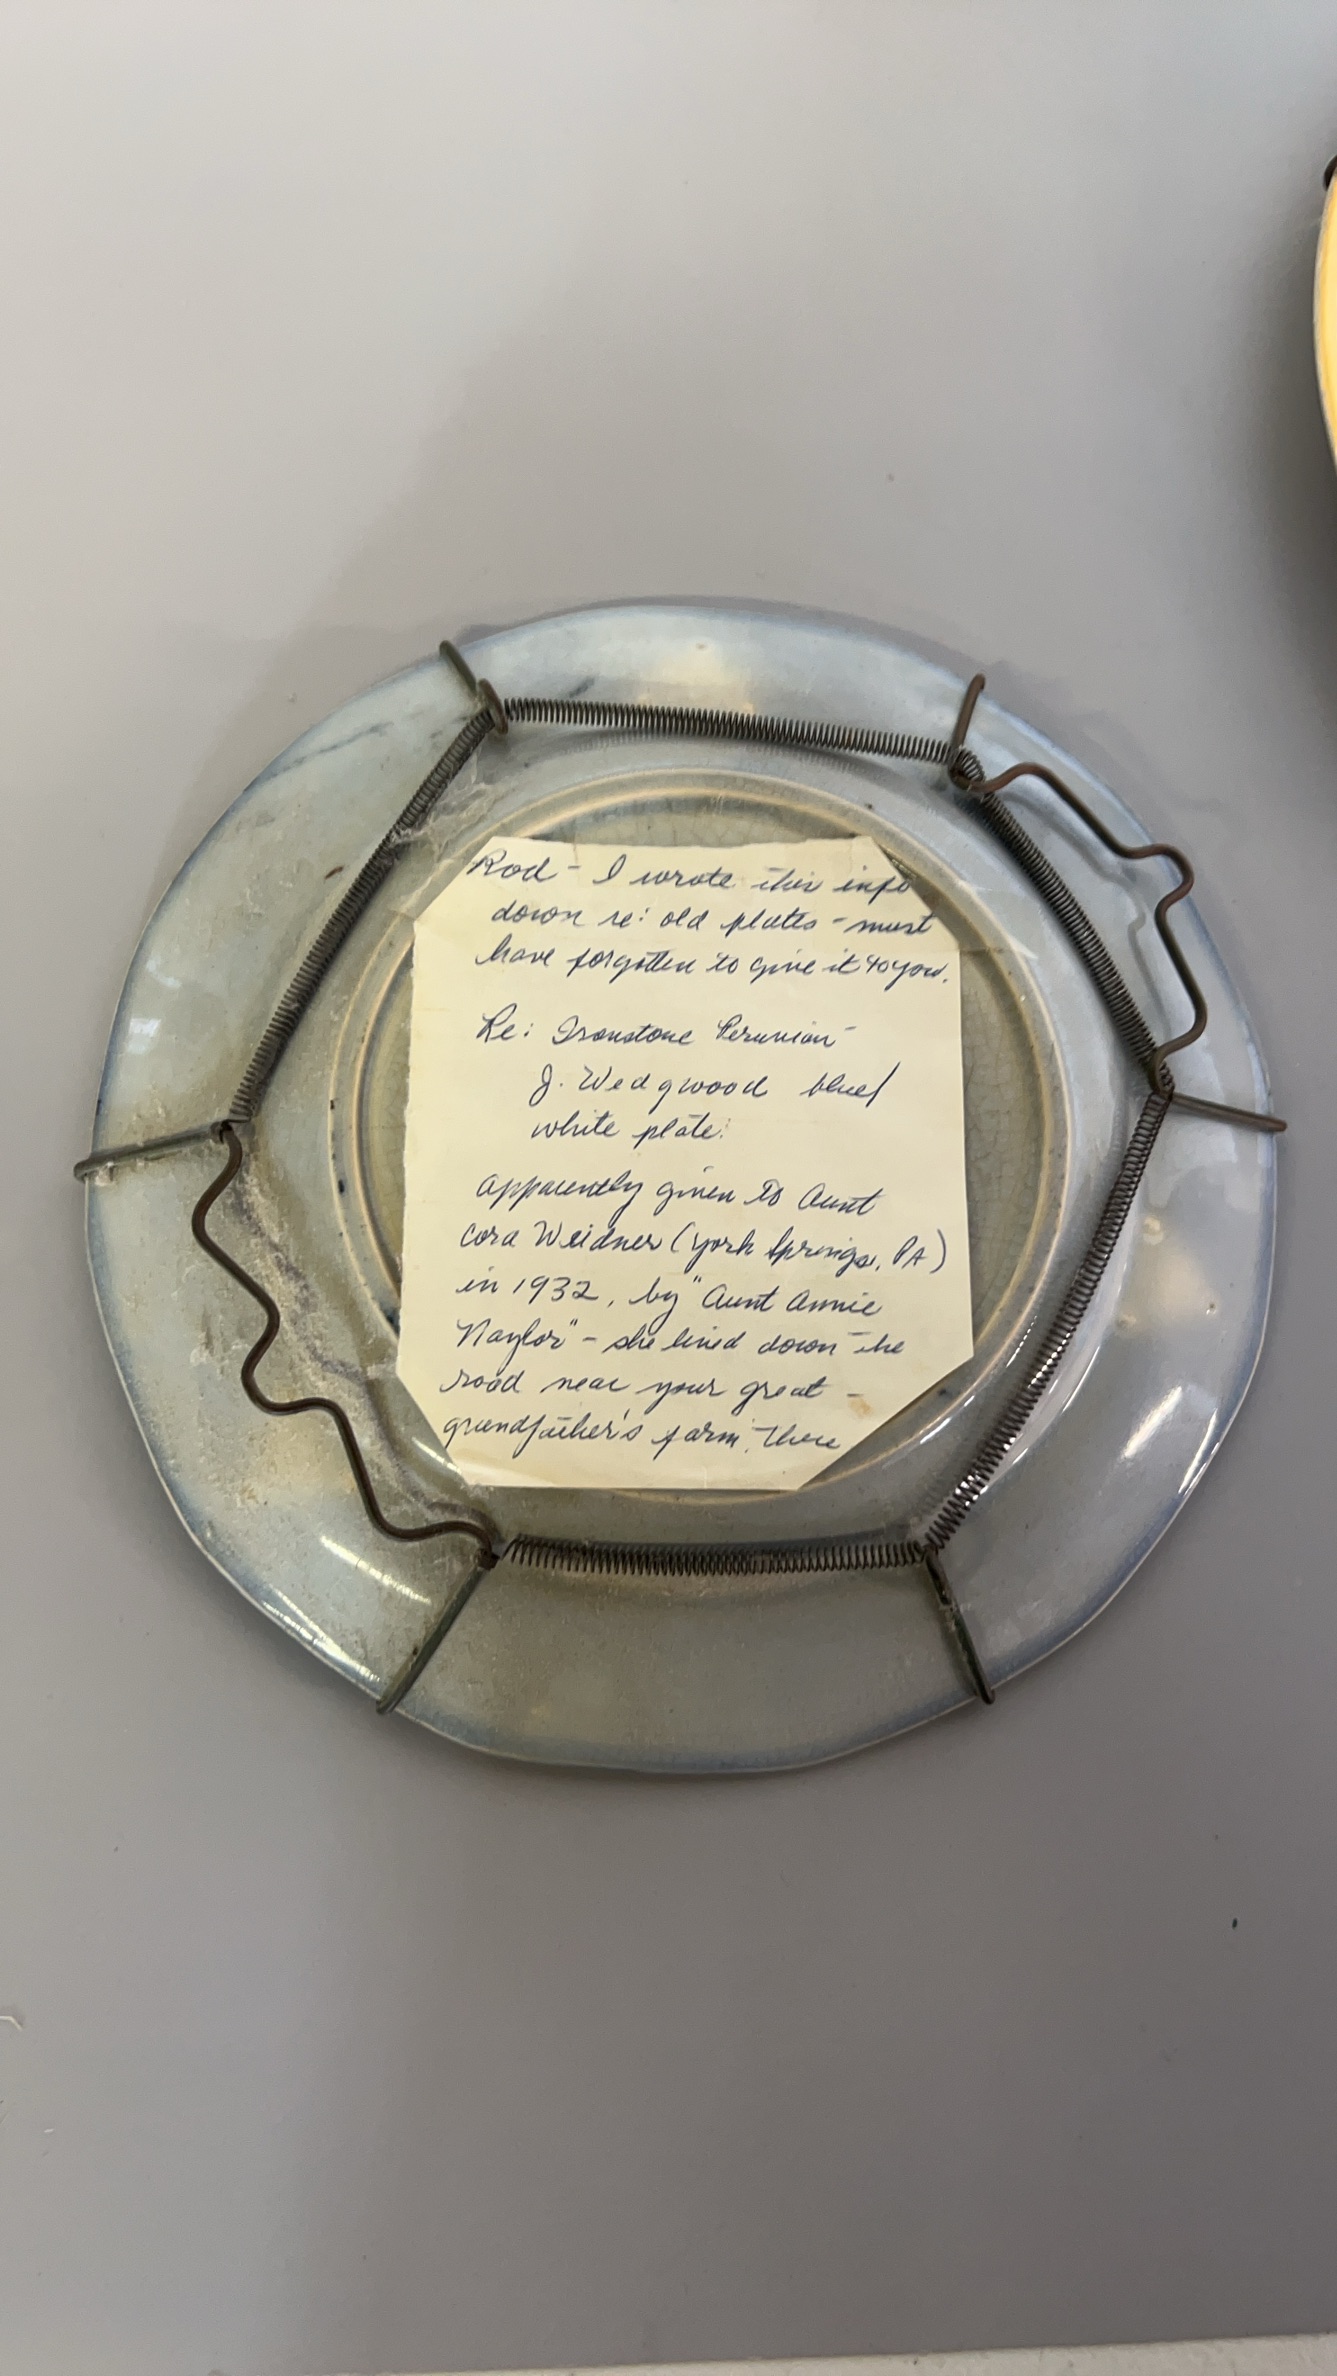 Rod - I wrote this info
down re: old plates - must
have forgotten to give it to you.
Re: Ironstone Peruvian -
J. Wedgwood blue/
white plate:
apparently given to Aunt
Cora Weidner (York Springs, PA)
in 1932, by "Aunt Annie
Naylor" - she lived down the
road near your great -
grandfather's farm. There